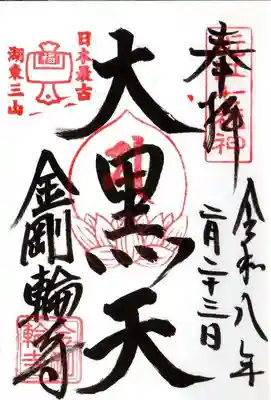 奉拝
令和八年
二月二十三日
大黒天
日本最古
湖東三山
福
金剛輪寺
金剛
輪寺